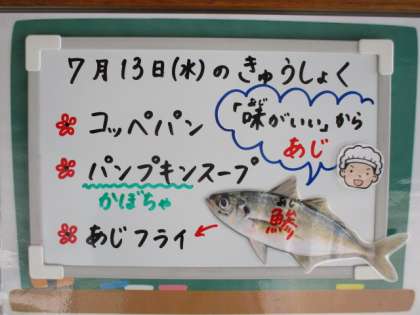 7月13日(水)のきゅうしょく
コッペパン
「味がいい」から
あじ
パンプキンスープ
かぼちゃ
あじフライ
あじ
鯵